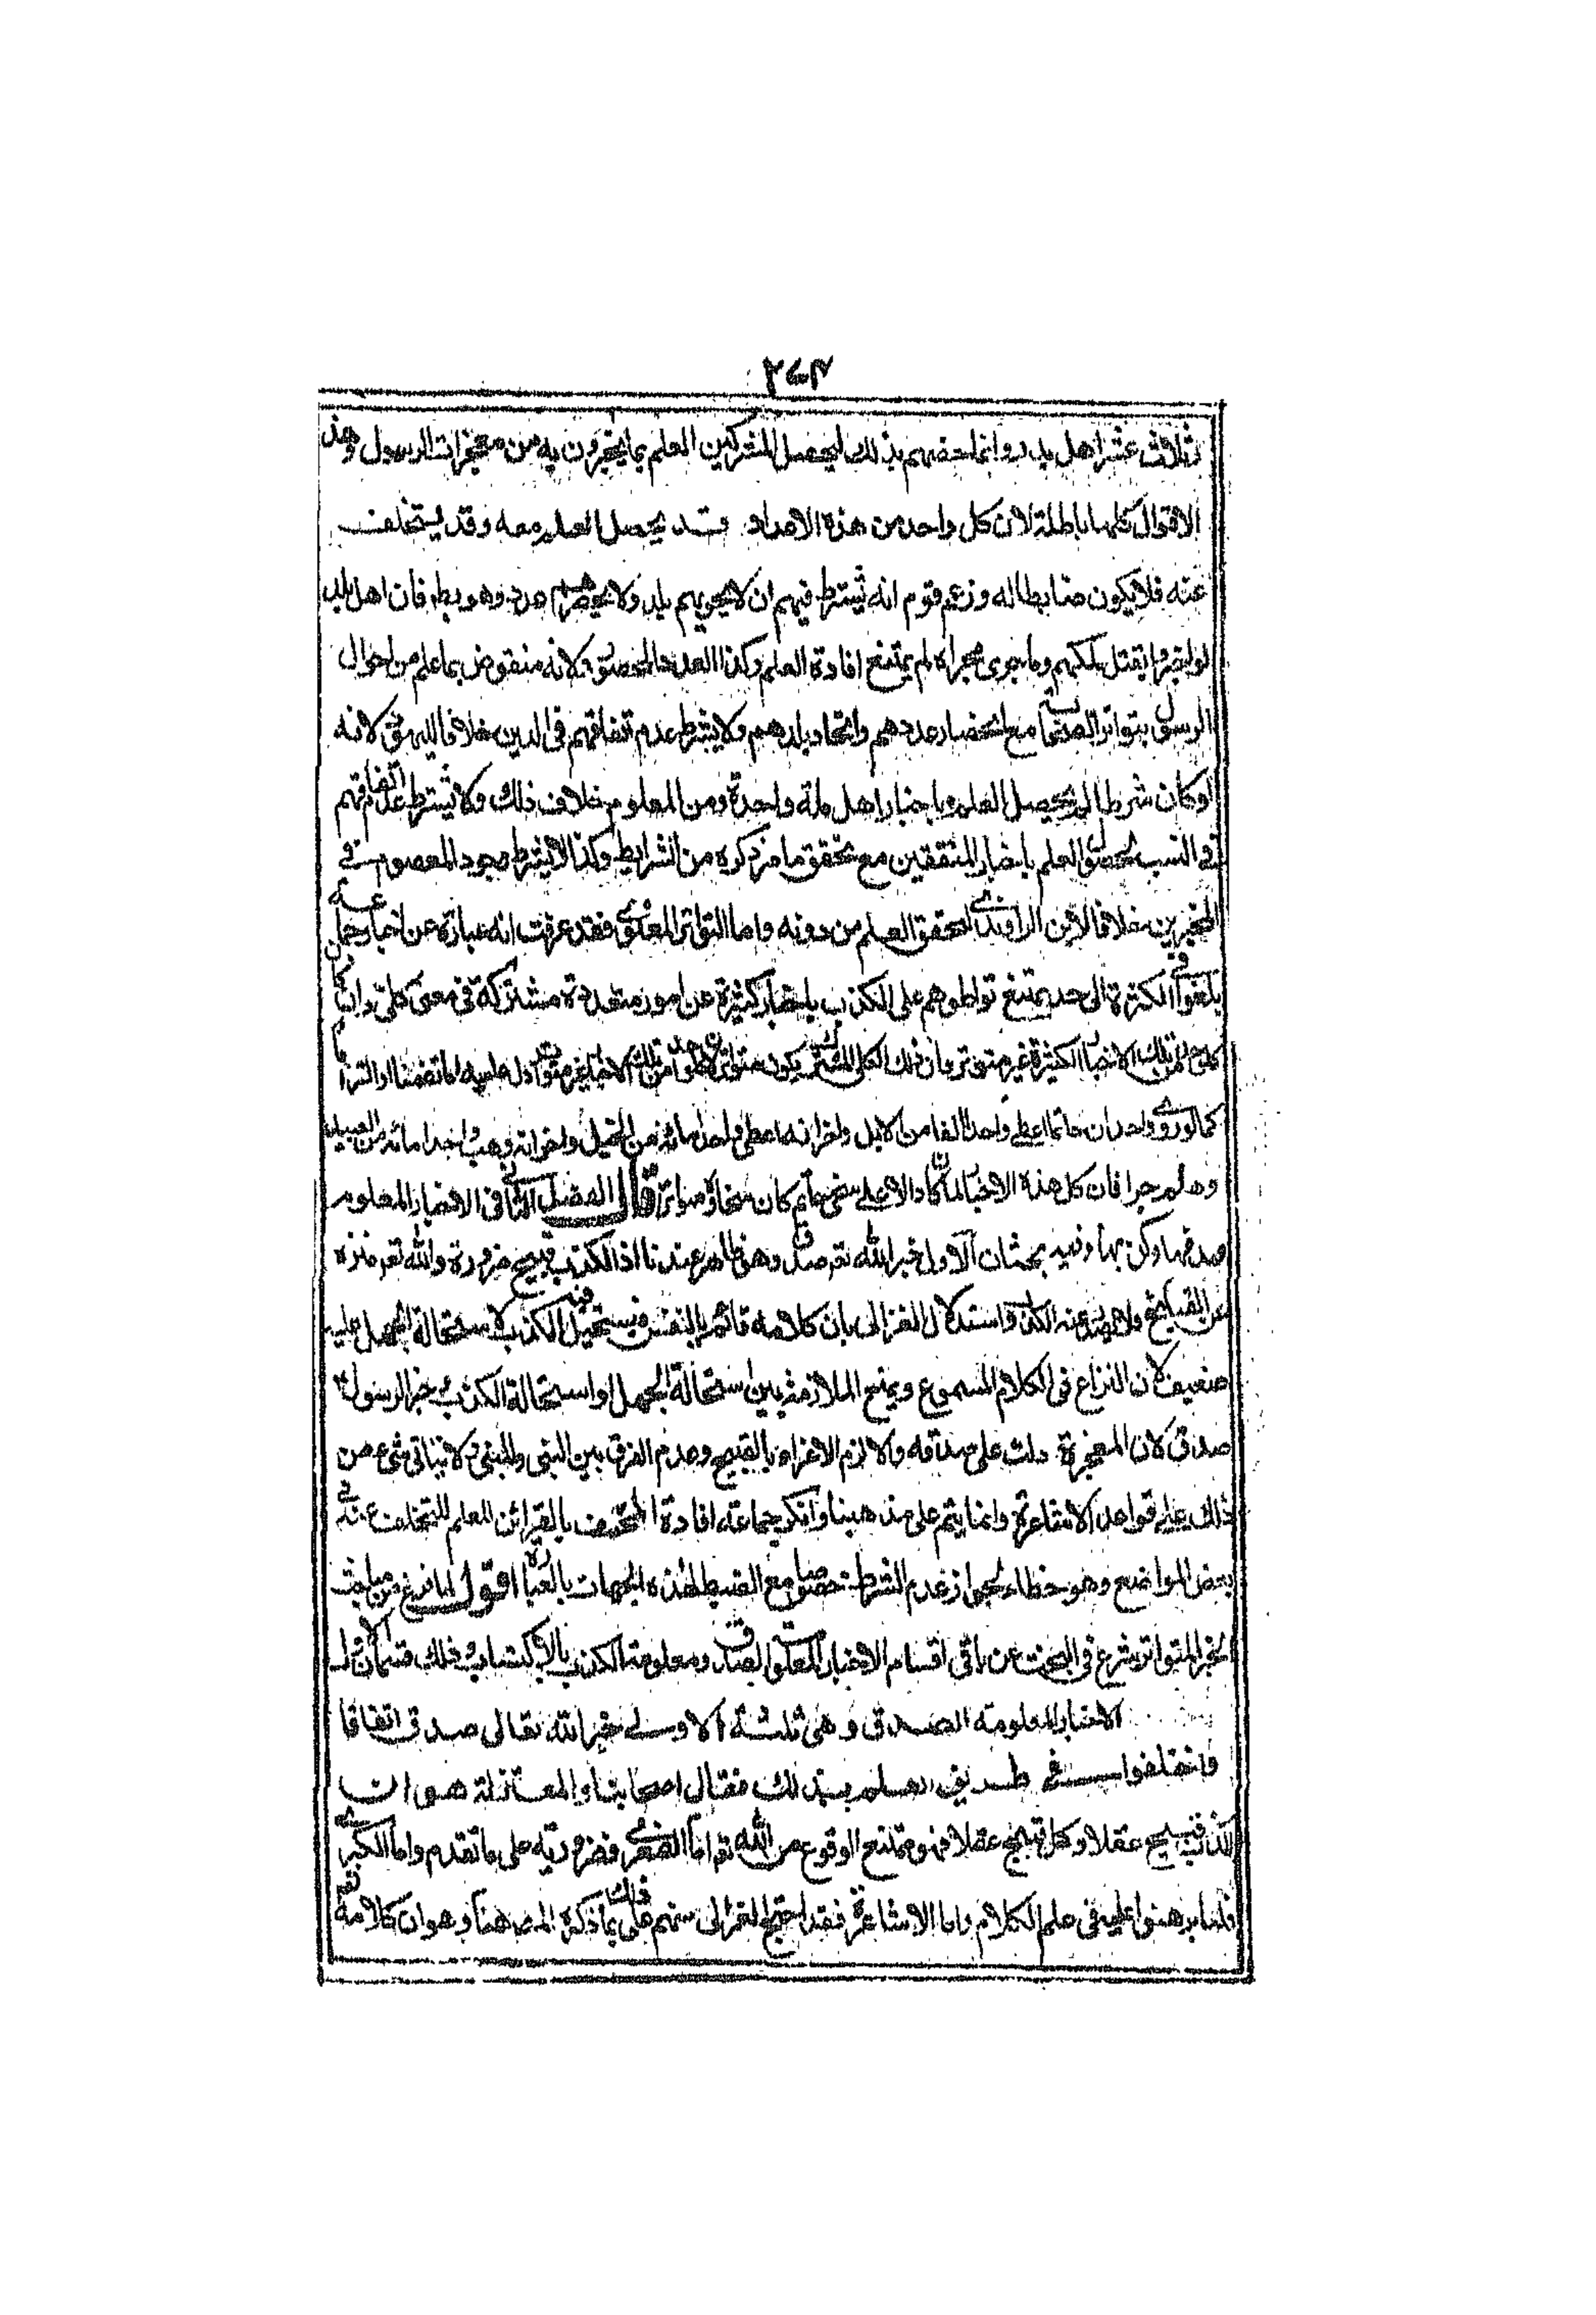 ٢٧٣
ثلاث عشر اهل بدر وانما خصهم بذلك ليحصل للمشركين العلم بما يخبرون به من معجزات الرسول وهذه
الاقوال كلها باطلة لان كل واحد من هذه الاعداد قد يحصل العلم معه وقد يتخلف
عنه فلا يكون ضابطا له وزعم قوم انه يشترط فيهم ان لا يحويهم بلد ولا يحصرهم عدد وهو بط فان اهل بلد
لو اخبروا بقتل ملكهم وما يجرى مجراه لم يمتنع افادة العلم وكذا العدد المحصور ولانه منقوض بما علم من احوال
الرسول بتواتر الصحابة مع انحصار عددهم واتحاد بلدهم ولا يشترط عدم اتفاقهم فى الدين خلافا لليهود لانه
لو كان شرطا لم يحصل العلم باخبار اهل ملة واحدة ومن المعلوم خلاف ذلك ولا يشترط عدم اتفاقهم
فى النسب لحصول العلم باخبار المتفقين مع تحقق ما مر ذكره من الشرايط وكذا لا يشترط وجود المعصوم فى
المخبرين خلافا لابن الراوندى لتحقق العلم من دونه واما التواتر المعنوى فقد عرفت انه عبارة عن اخبار جماعة
بلغوا فى الكثرة الى حد يمتنع تواطؤهم على الكذب باخبار كثيرة عن امور متعددة مشتركة فى معنى كلى وان كان
كل من تلك الاخبار الكثيرة غير متواتر فان ذلك الكلى المشترك يكون متواترا كل واحد من تلك الاخبار غير متواتر دل عليه اما تضمنا او التزاما
كما لو روى واحد ان حاتما اعطى واحدا الفا من الابل واخر انه اعطى واحدا مائة من الخيل واخر انه وهب واحدا مائة من العبيد
وهلم جرا فان كل هذه الاخبار لما كان دالا على سخى حاتم كان سخاؤه متواترا قال الفصل الثانى فى الاخبار المعلوم
صدقها وكذبها وفيه بحثان الاول خبر الله تع صدق وهو ظاهر عندنا اذ الكذب قبيح ضرورة والله تع منزه
عن القبايح ولا يصدر عنه الكذب واستدلال الغزالى بان كلامه قائم بالنفس ويستحيل فيه الكذب لاستحالة الجهل عليه
ضعيف لان النزاع فى الكلام المسموع ويمنع الملازمة بين استحالة الجهل او استحالة الكذب وخبر الرسول
صدق لان المعجزة دلت على صدقه والا لزم الاغراء بالقبيح وعدم الفرق بين النبى والمتنبى ولا يتاتى شىء من
ذلك على قواعد الاشاعرة وانما يتم على مذهبنا وانكر جماعة افادة المحتف بالقرائن للعلم للتخلف عنه فى
بعض المواضع وهو خطاء لجواز عدم الشرط خصوصا مع الضبط لهذه الجهات بالعبارة اقول لما فرغ من مباحث
الخبر المتواتر شرع فى البحث عن باقى اقسام الاخبار المعلومة الصدق ومعلومة الكذب بالاكتساب وذلك قسمان الاول
الاخبار المعلومة الصدق وهى ثلثة الاول خبر الله تعالى صدق اتفاقا
واختلفوا فى طريق العلم بذلك فقال اصحابنا والمعتزلة هو ان
الكذب قبيح عقلا وكل قبيح عقلا فهو ممتنع الوقوع من الله تع اما الصغرى فضرورية على ما تقدم واما الكبرى
فلما برهنوا عليه فى علم الكلام واما الاشاعرة فقد احتج الغزالى منهم على ذلك بما ذكره المص هنا وهو ان كلامه تع